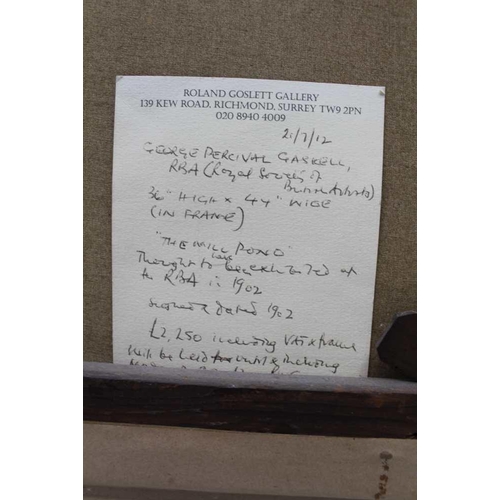 ROLAND GOSLETT GALLERY
139 KEW ROAD, RICHMOND, SURREY TW9 2PN
020 8940 4009
21/7/12
GEORGE PERCIVAL GASKELL,
RBA (Royal Society of
British Artists)
36" HIGH x 44" WIDE
(IN FRAME)
"THE MILL POND"
Thought to have been exhibited at
the RBA in 1902
signed & dated 1902
£2,250 including VAT & frame
Will be held until & including